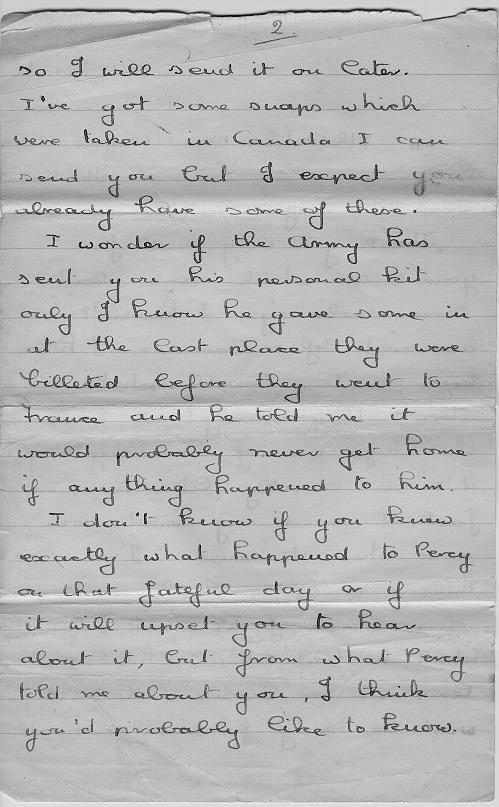 2
so I will send it on later.
I've got some snaps which
were taken in Canada I can
send you but I expect you
already have some of these.
I wonder if the Army has
sent you his personal kit
only I know he gave some in
at the last place they were
billeted before they went to
France and he told me it
would probably never get home
if any thing happened to him.
I don't know if you knew
exactly what happened to Percy
on that fateful day or if
it will upset you to hear
about it, but from what Percy
told me about you, I think
you'd probably like to know.